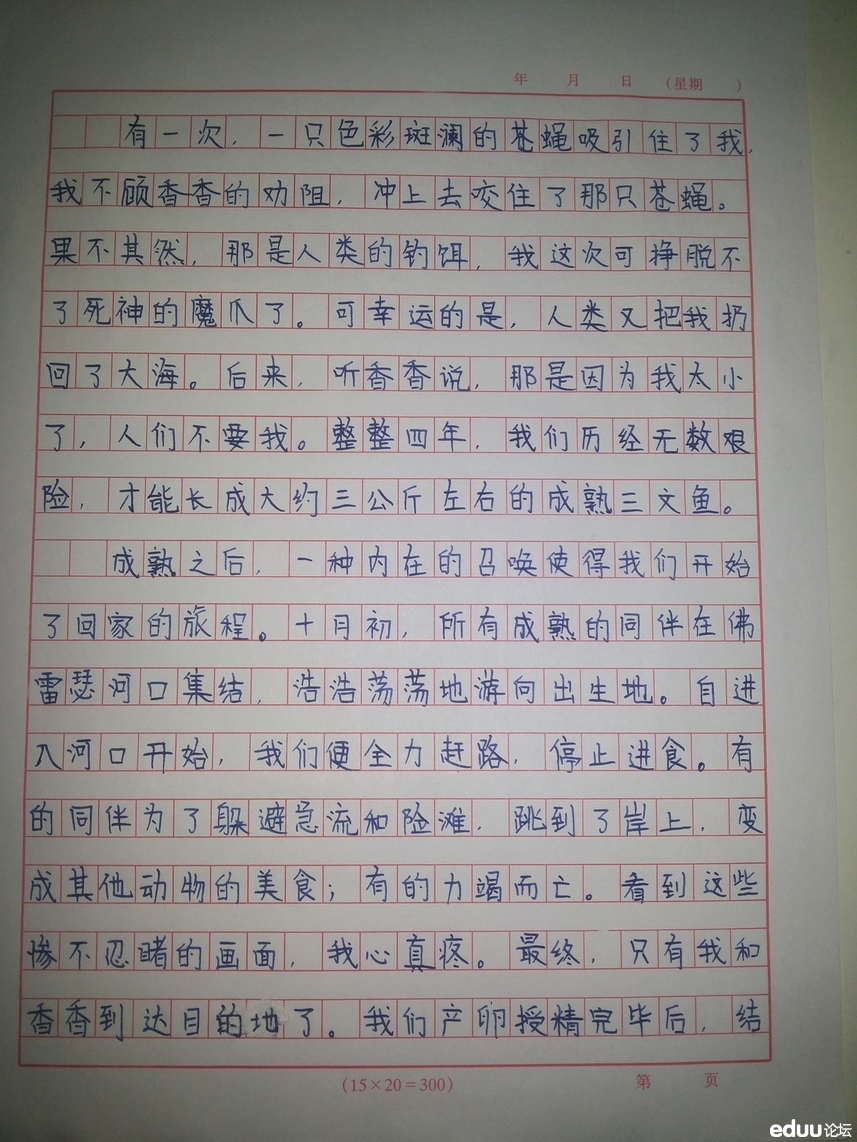 年 月 日 （星期 ）
有一次，一只色彩斑澜的苍蝇吸引住了我，
我不顾香香的劝阻，冲上去咬住了那只苍蝇。
果不其然，那是人类的钓饵，我这次可挣脱不
了死神的魔爪了。可幸运的是，人类又把我扔
回了大海。后来，听香香说，那是因为我太小
了，人们不要我。整整四年，我们历经无数艰
险，才能长成大约三公斤左右的成熟三文鱼。
成熟之后，一种内在的召唤使得我们开始
了回家的旅程。十月初，所有成熟的同伴在佛
雷瑟河口集结，浩浩荡荡地游向出生地。自进
入河口开始，我们便全力赶路，停止进食。有
的同伴为了躲避急流和险滩，跳到了岸上，变
成其他动物的美食；有的力竭而亡。看到这些
惨不忍睹的画面，我心真疼。最终，只有我和
香香到达目的地了。我们产卵授精完毕后，结
（15×20＝300）
第 页
eduu论坛